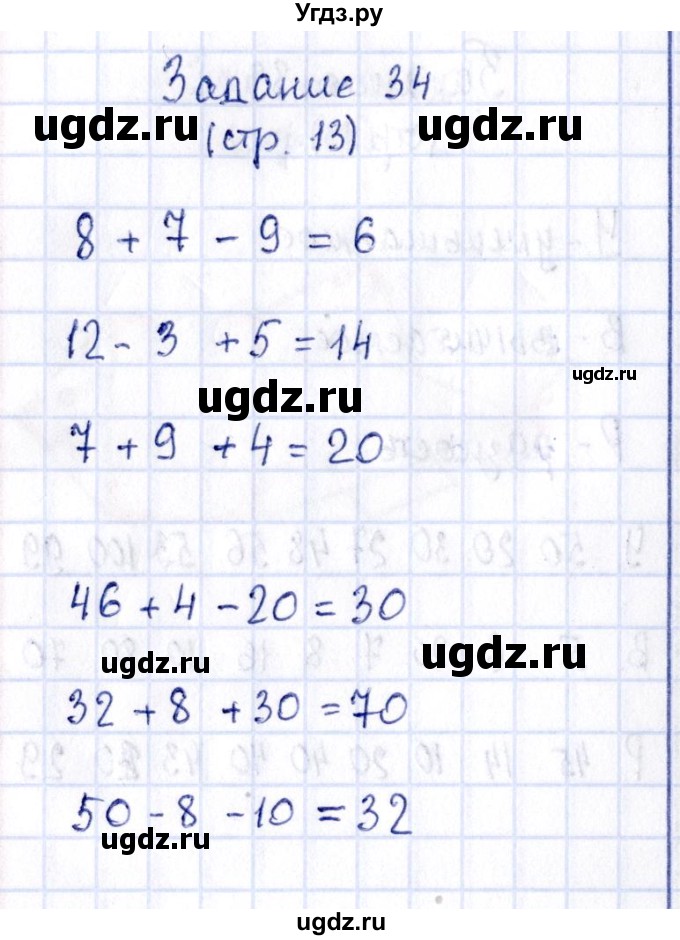 Угдз.ру
Задание 34
ugdz.ru ugdz.ru
(стр. 13)
8 + 7 - 9 = 6
12 - 3 + 5 = 14
ugdz.ru
ugdz.ru
7 + 9 + 4 = 20
46 + 4 - 20 = 30
ugdz.ru ugdz.ru
32 + 8 + 30 = 70
50 - 8 - 10 = 32
ugdz.ru ugdz.ru
ugdz.ru